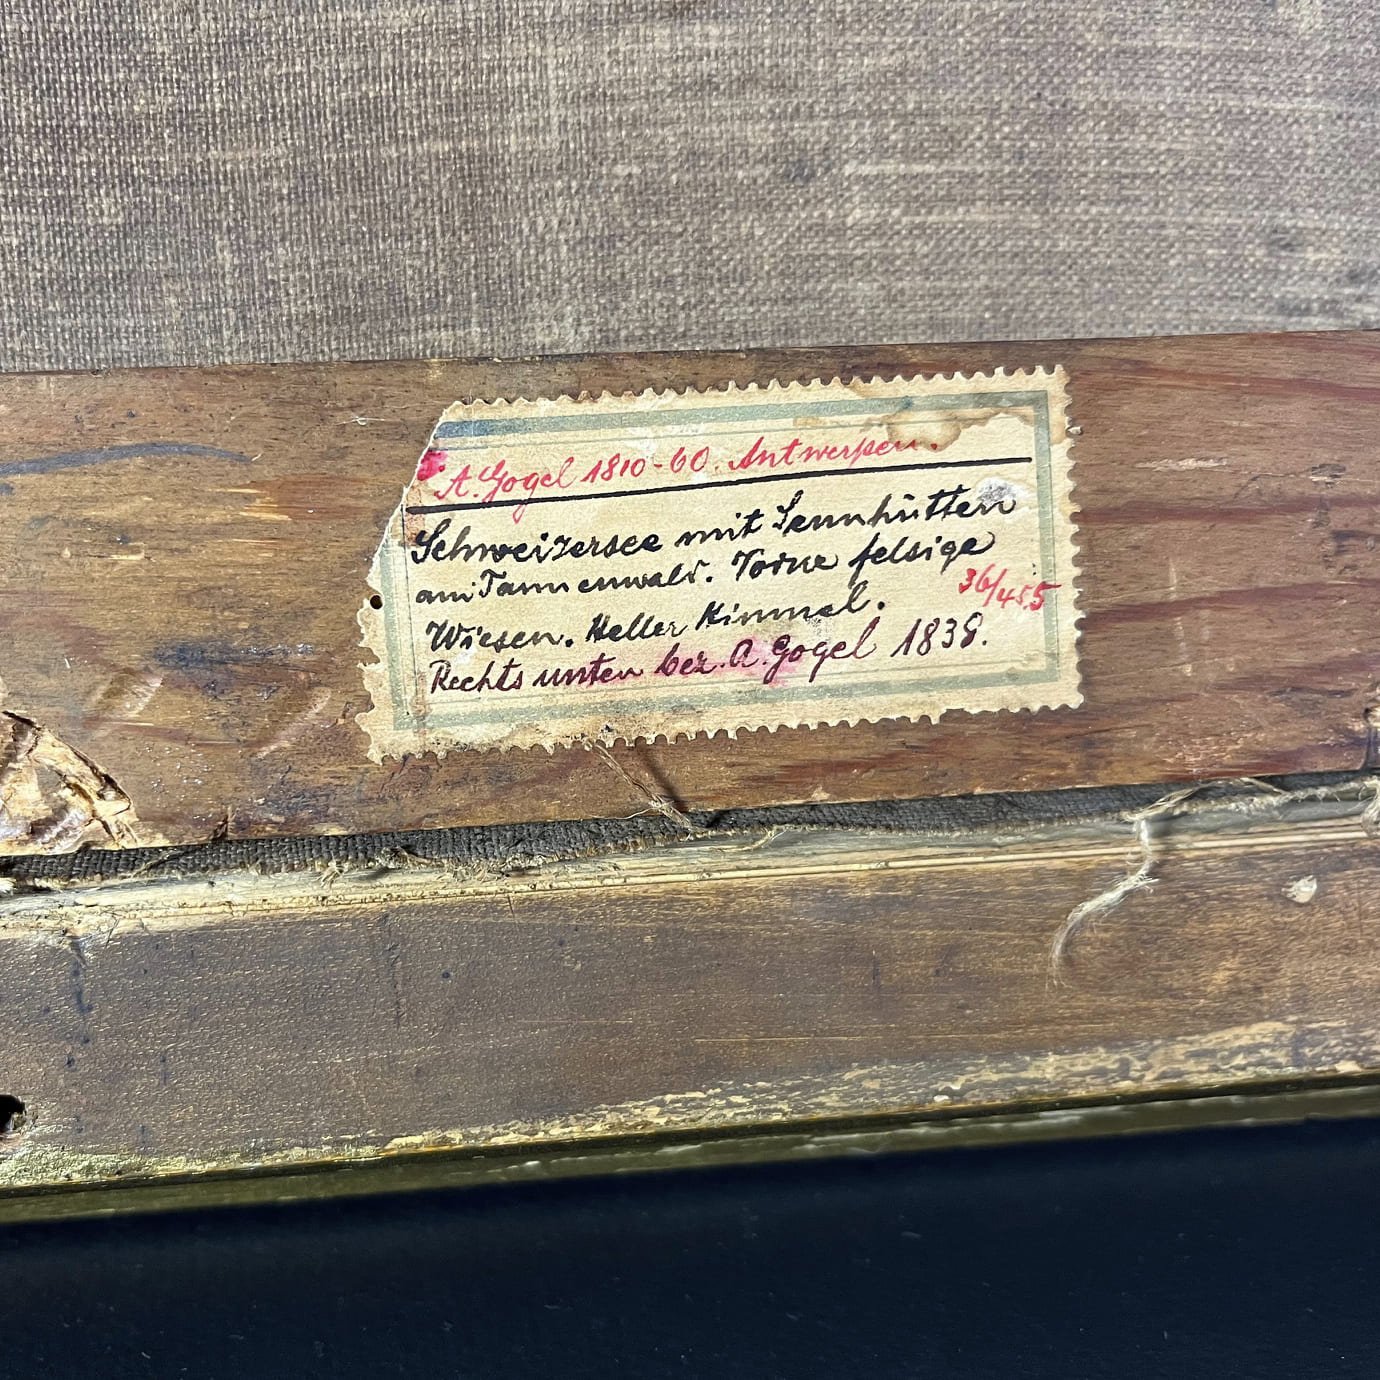 A. Gogel 1810-60. Antwerpen.
Schweizersee mit Sennhütten
am Tannenwald. Vorne felsige
Wiesen. Heller Himmel.
36/455
Rechts unten bez. A. Gogel 1838.